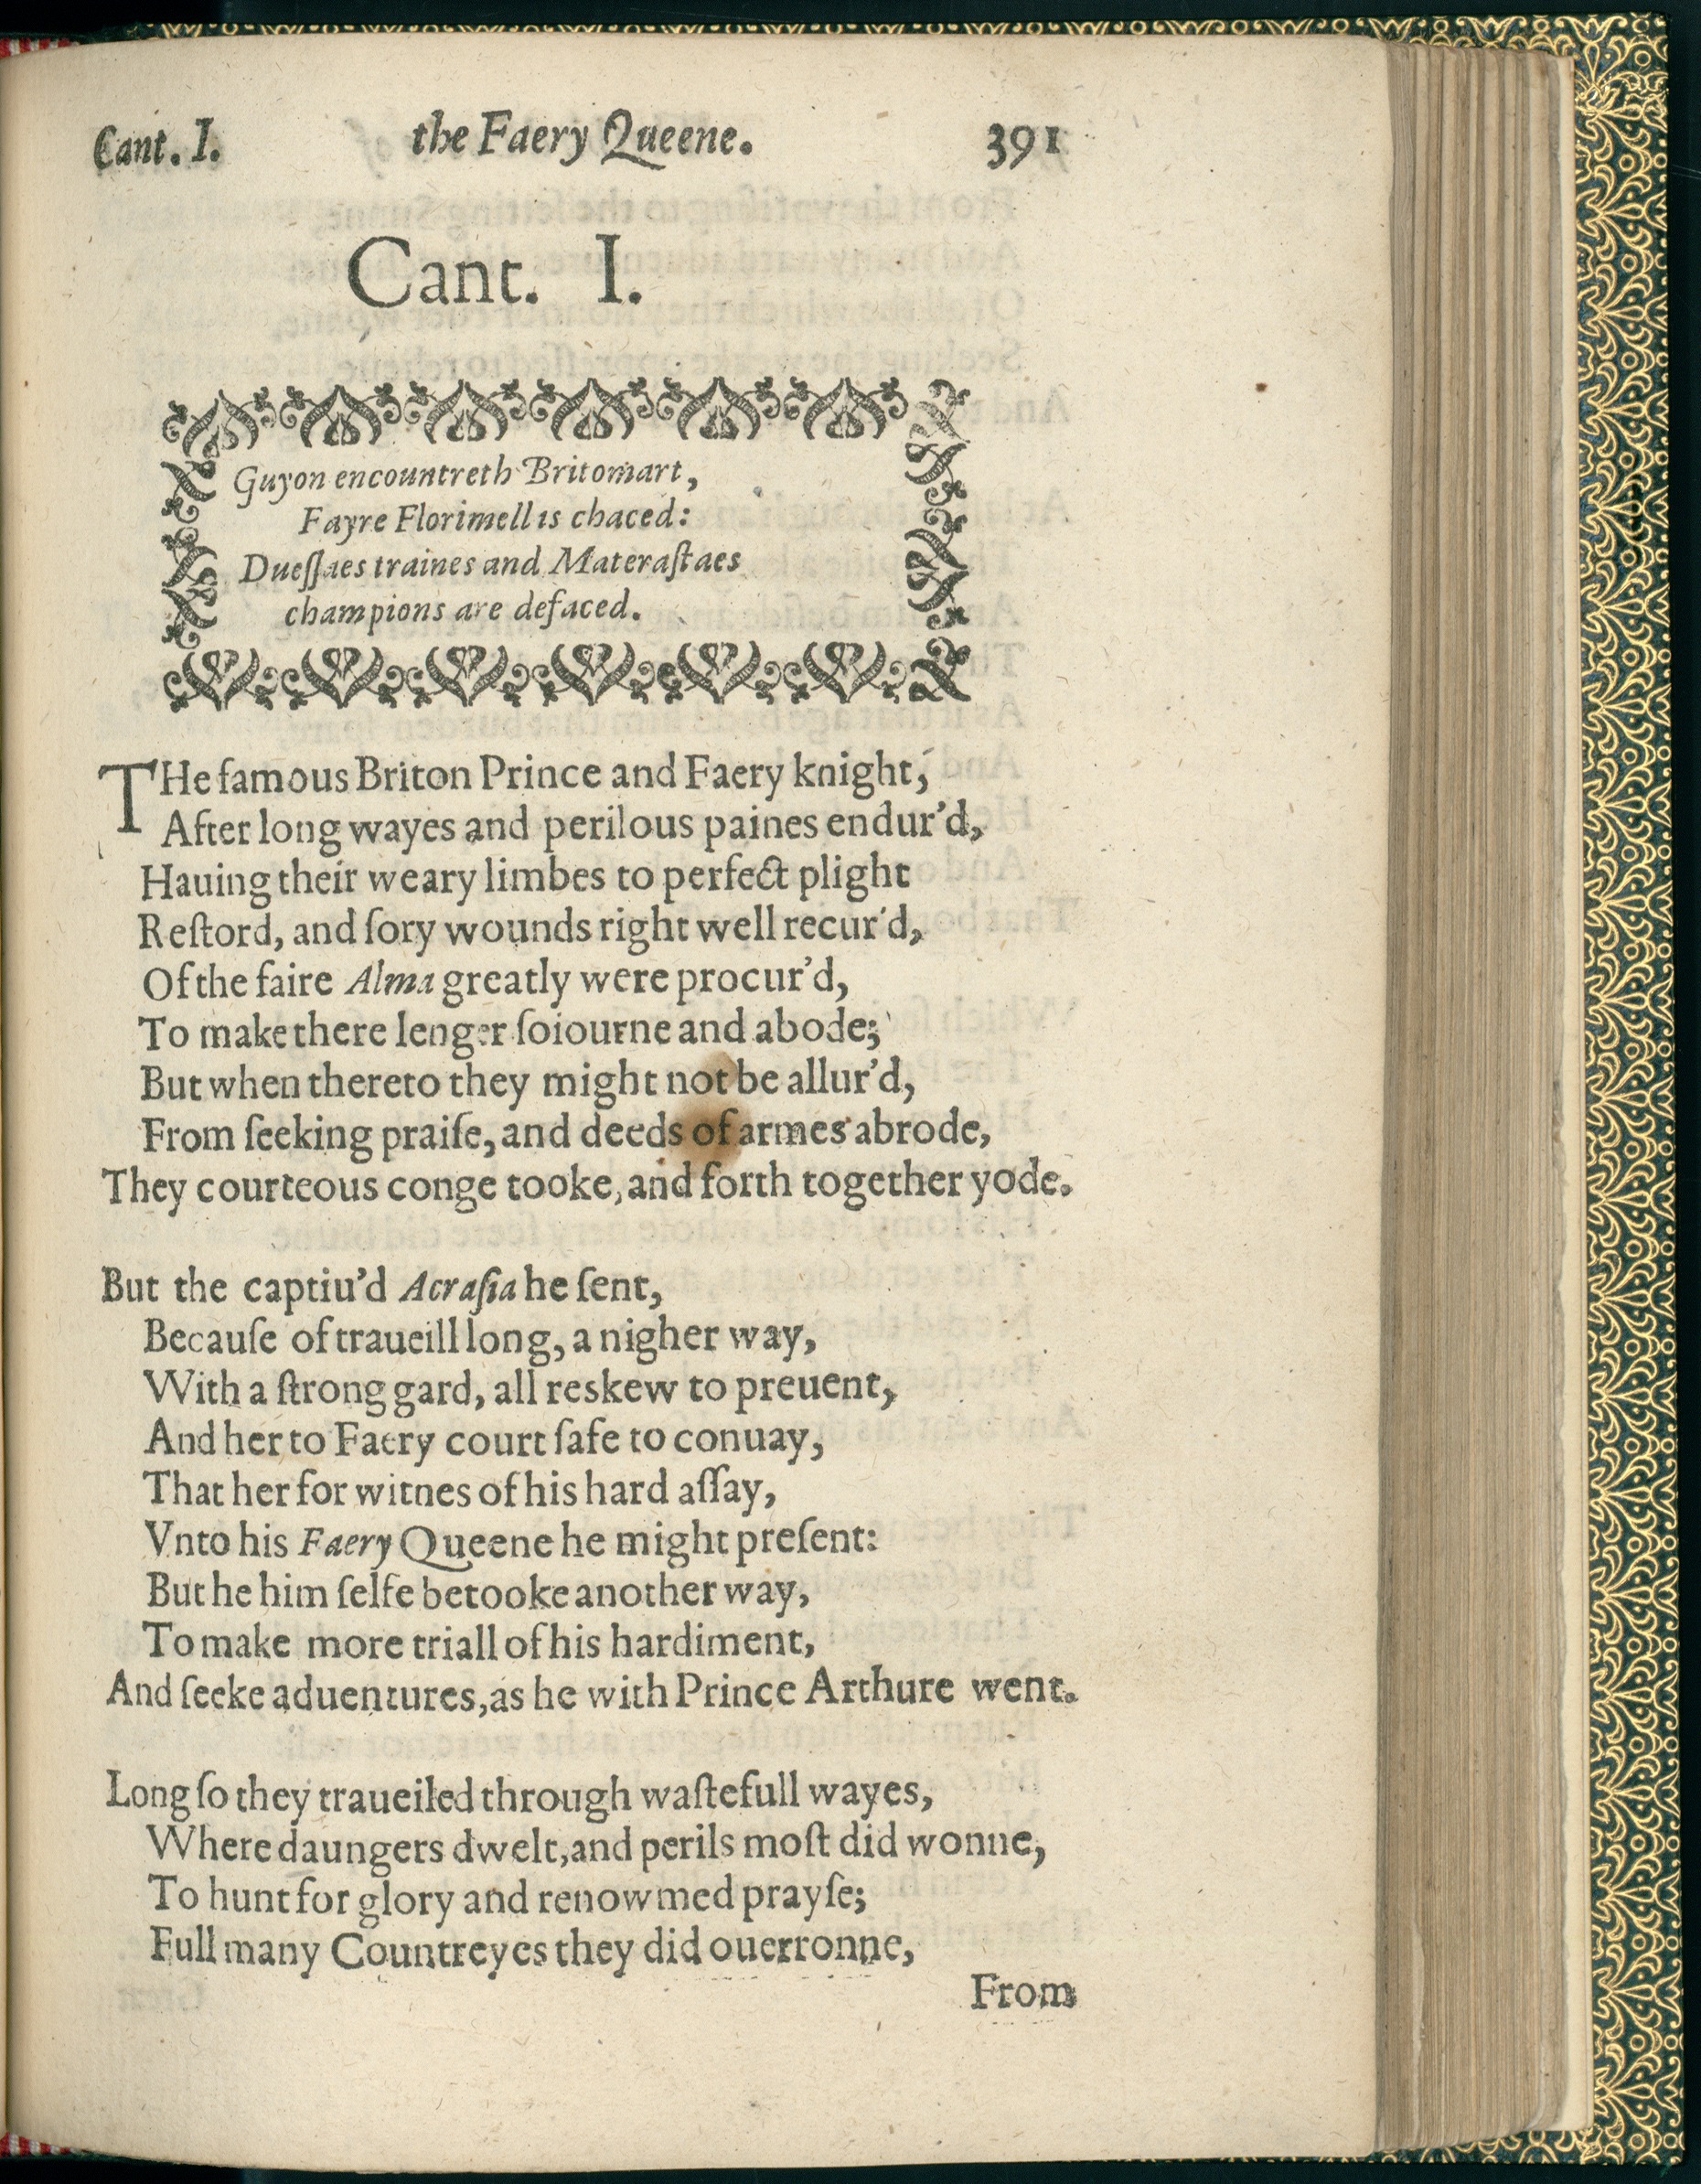 Cant. I. the Faery Queene. 391
Cant. I.
Guyon encountreth Britomart,
Fayre Florimell is chaced:
Dueſſaes traines and Materaſtaes
champions are defaced.
THe famous Briton Prince and Faery knight,
After long wayes and perilous paines endur'd,
Hauing their weary limbes to perfect plight
Reſtord, and ſory wounds right well recur'd,
Of the faire Alma greatly were procur'd,
To make there lenger ſoiourne and abode;
But when thereto they might not be allur'd,
From ſeeking praiſe, and deeds of armes abrode,
They courteous conge tooke, and forth together yode.
But the captiu'd Acraſia he ſent,
Becauſe of traueill long, a nigher way,
With a ſtrong gard, all reskew to preuent,
And her to Faery court ſafe to conuay,
That her for witnes of his hard aſſay,
Vnto his Faery Queene he might preſent:
But he him ſelfe betooke another way,
To make more triall of his hardiment,
And ſeeke aduentures, as he with Prince Arthure went.
Long ſo they traueiled through waſtefull wayes,
Where daungers dwelt, and perils moſt did wonne,
To hunt for glory and renowmed prayſe;
Full many Countreyes they did ouerronne,
From